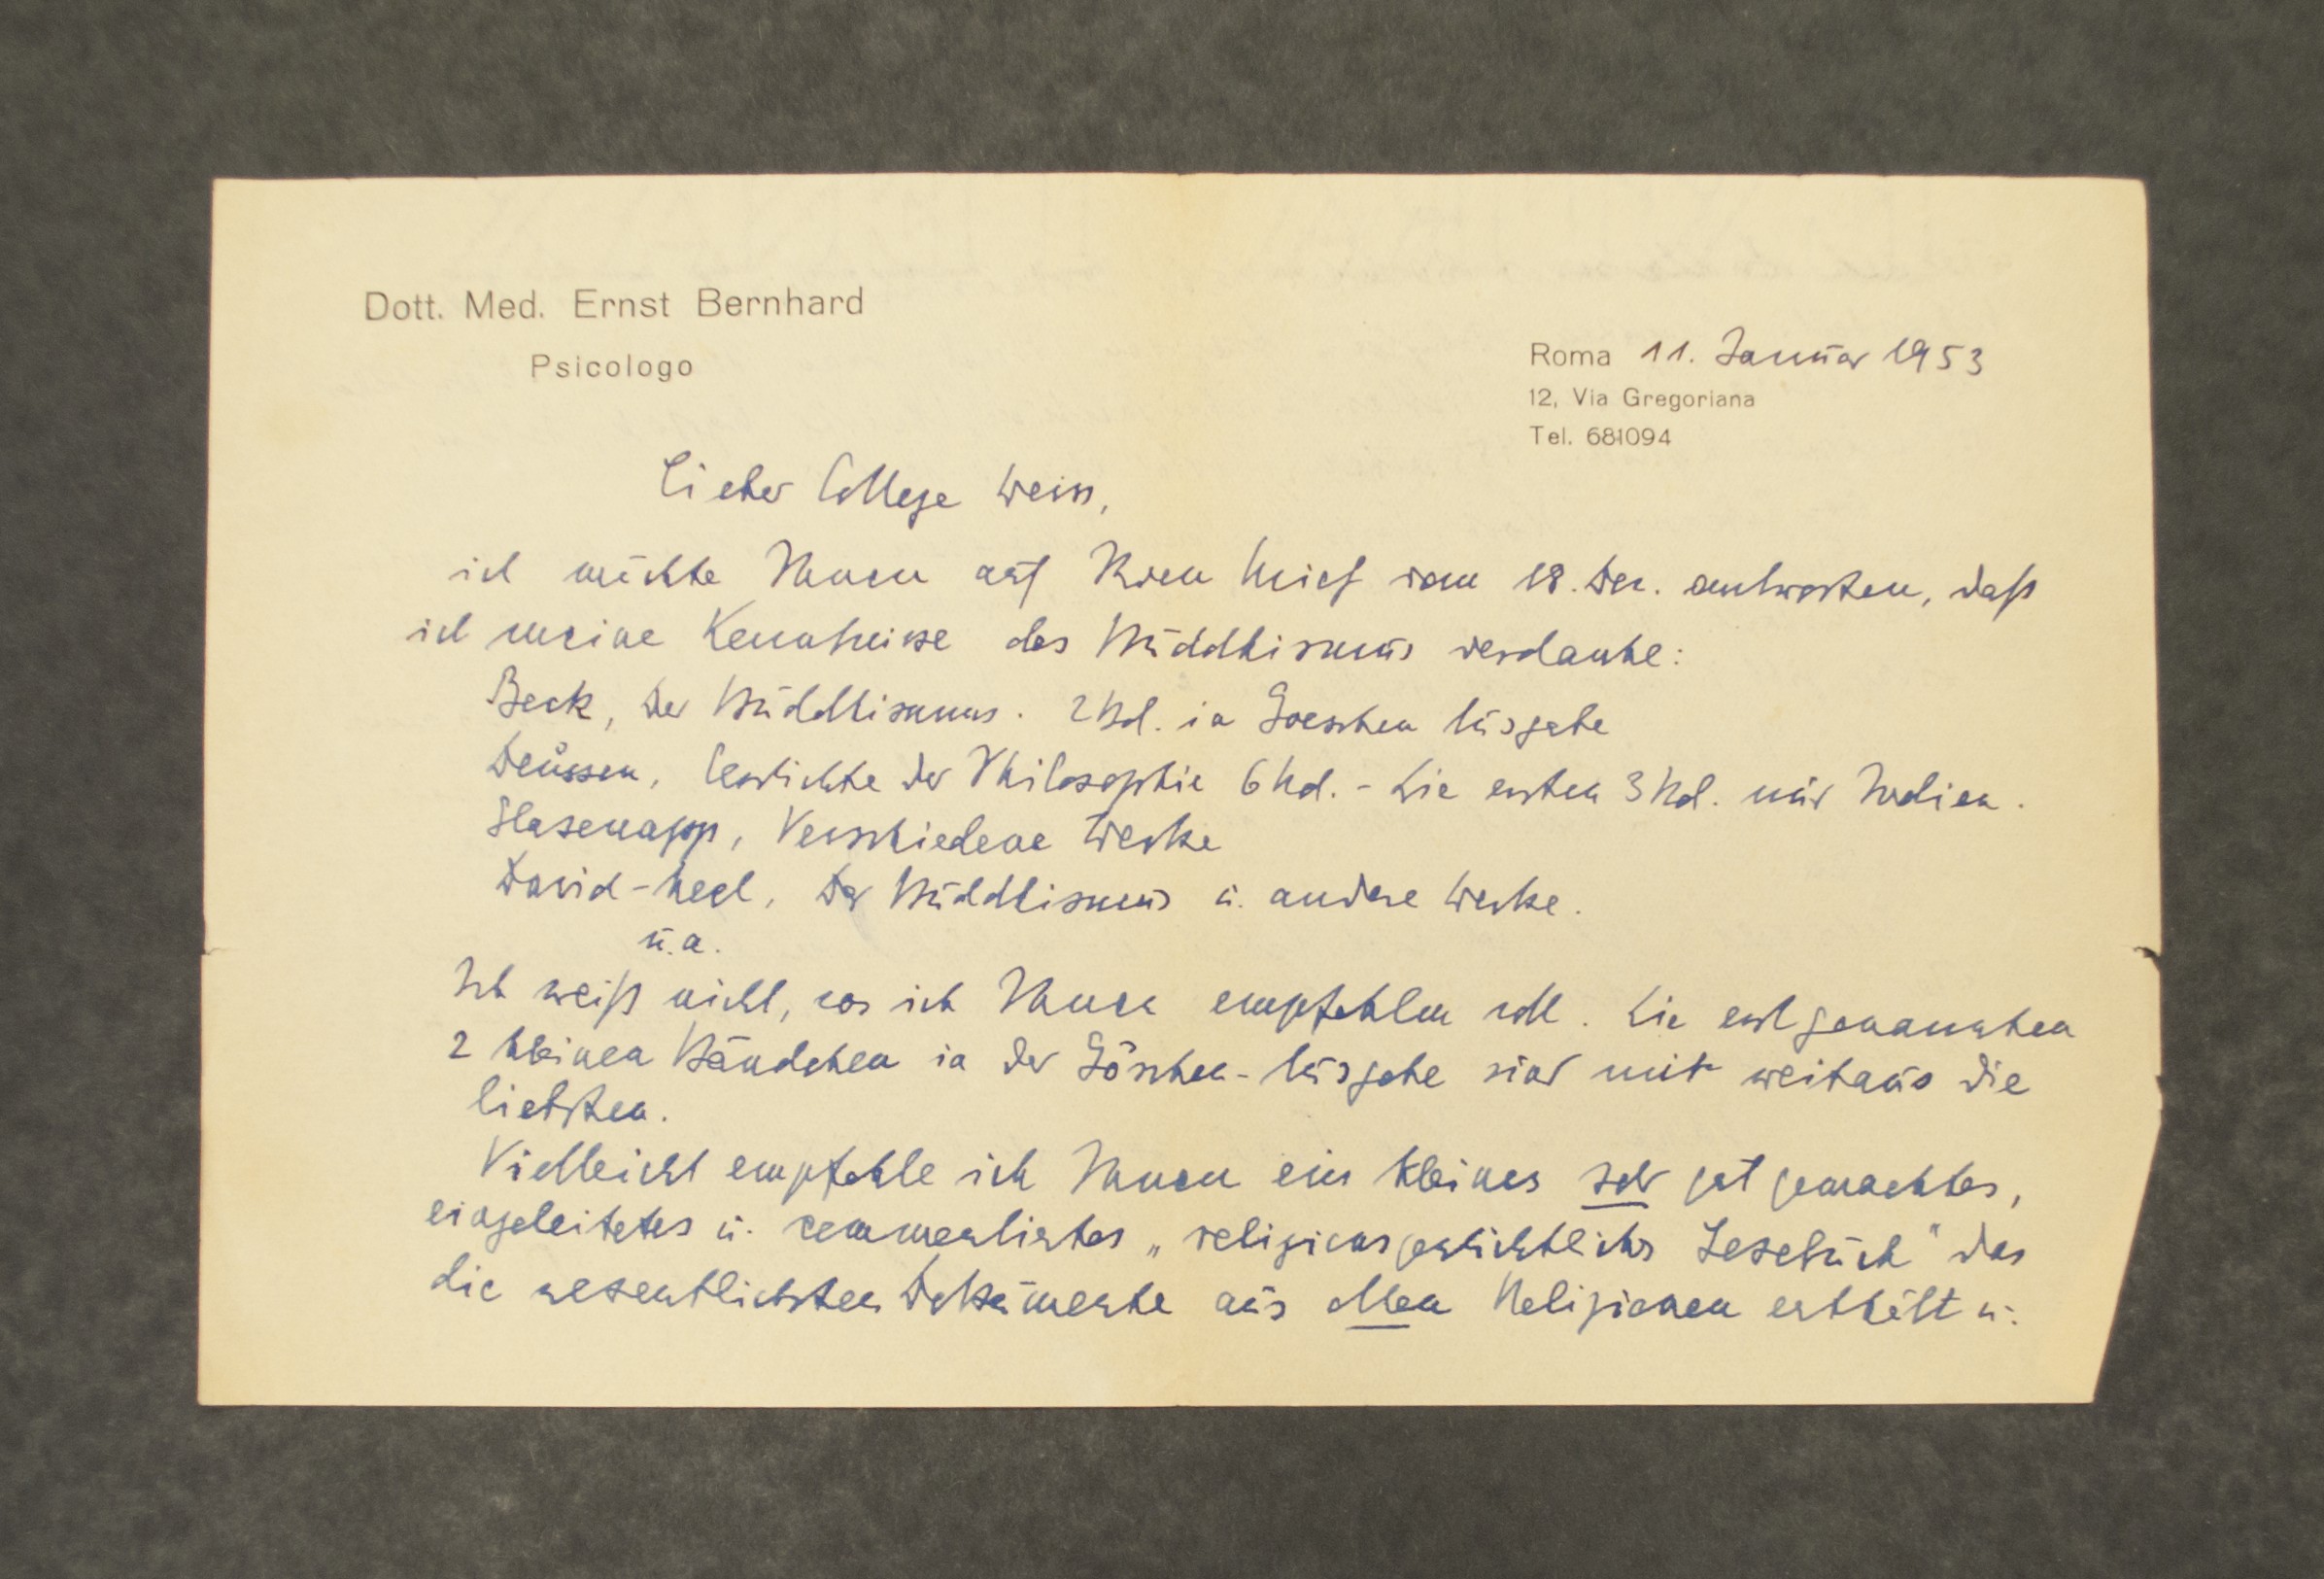 Dott. Med. Ernst Bernhard
Psicologo
Roma 11. Januar 1953
12, Via Gregoriana
Tel. 681094
Lieber College Weiss,
ich möchte Ihnen auf Ihren Brief vom 18. Dez. antworten, daß
ich meine Kenntnisse des Buddhismus verdanke:
Beck, Der Buddhismus. 2 Bd. in Goeschen Ausgabe
Deussen, Geschichte der Philosophie 6 Bd. - Die ersten 3 Bd. nur Indien.
Glasenapp, Verschiedene Werke
David-Neel, Der Buddhismus u. andere Werke.
u.a.
Ich weiß nicht, was ich Ihnen empfehlen soll. Die erstgenannten
2 kleinen Bändchen in der Göschen-Ausgabe sind mir weitaus die
liebsten.
Vielleicht empfehle ich Ihnen ein kleines sehr gut gemachtes,
eingeleitetes u. commentiertes „religionsgeschichtliches Lesebuch" das
die wesentlichsten Dokumente aus allen Religionen enthält u.